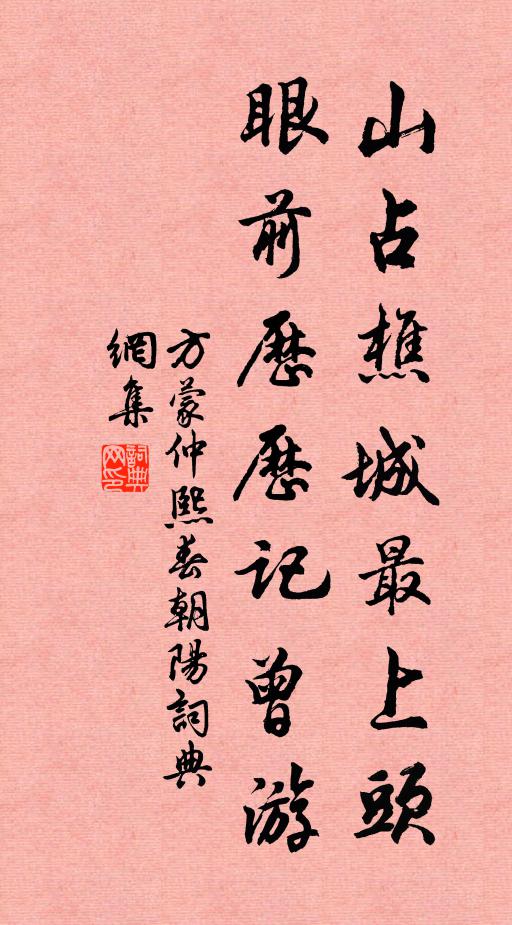 山占樵城最上頭
眼前歷歷記曾游
方蒙仲熙春朝陽詞典
網集
詞典網印